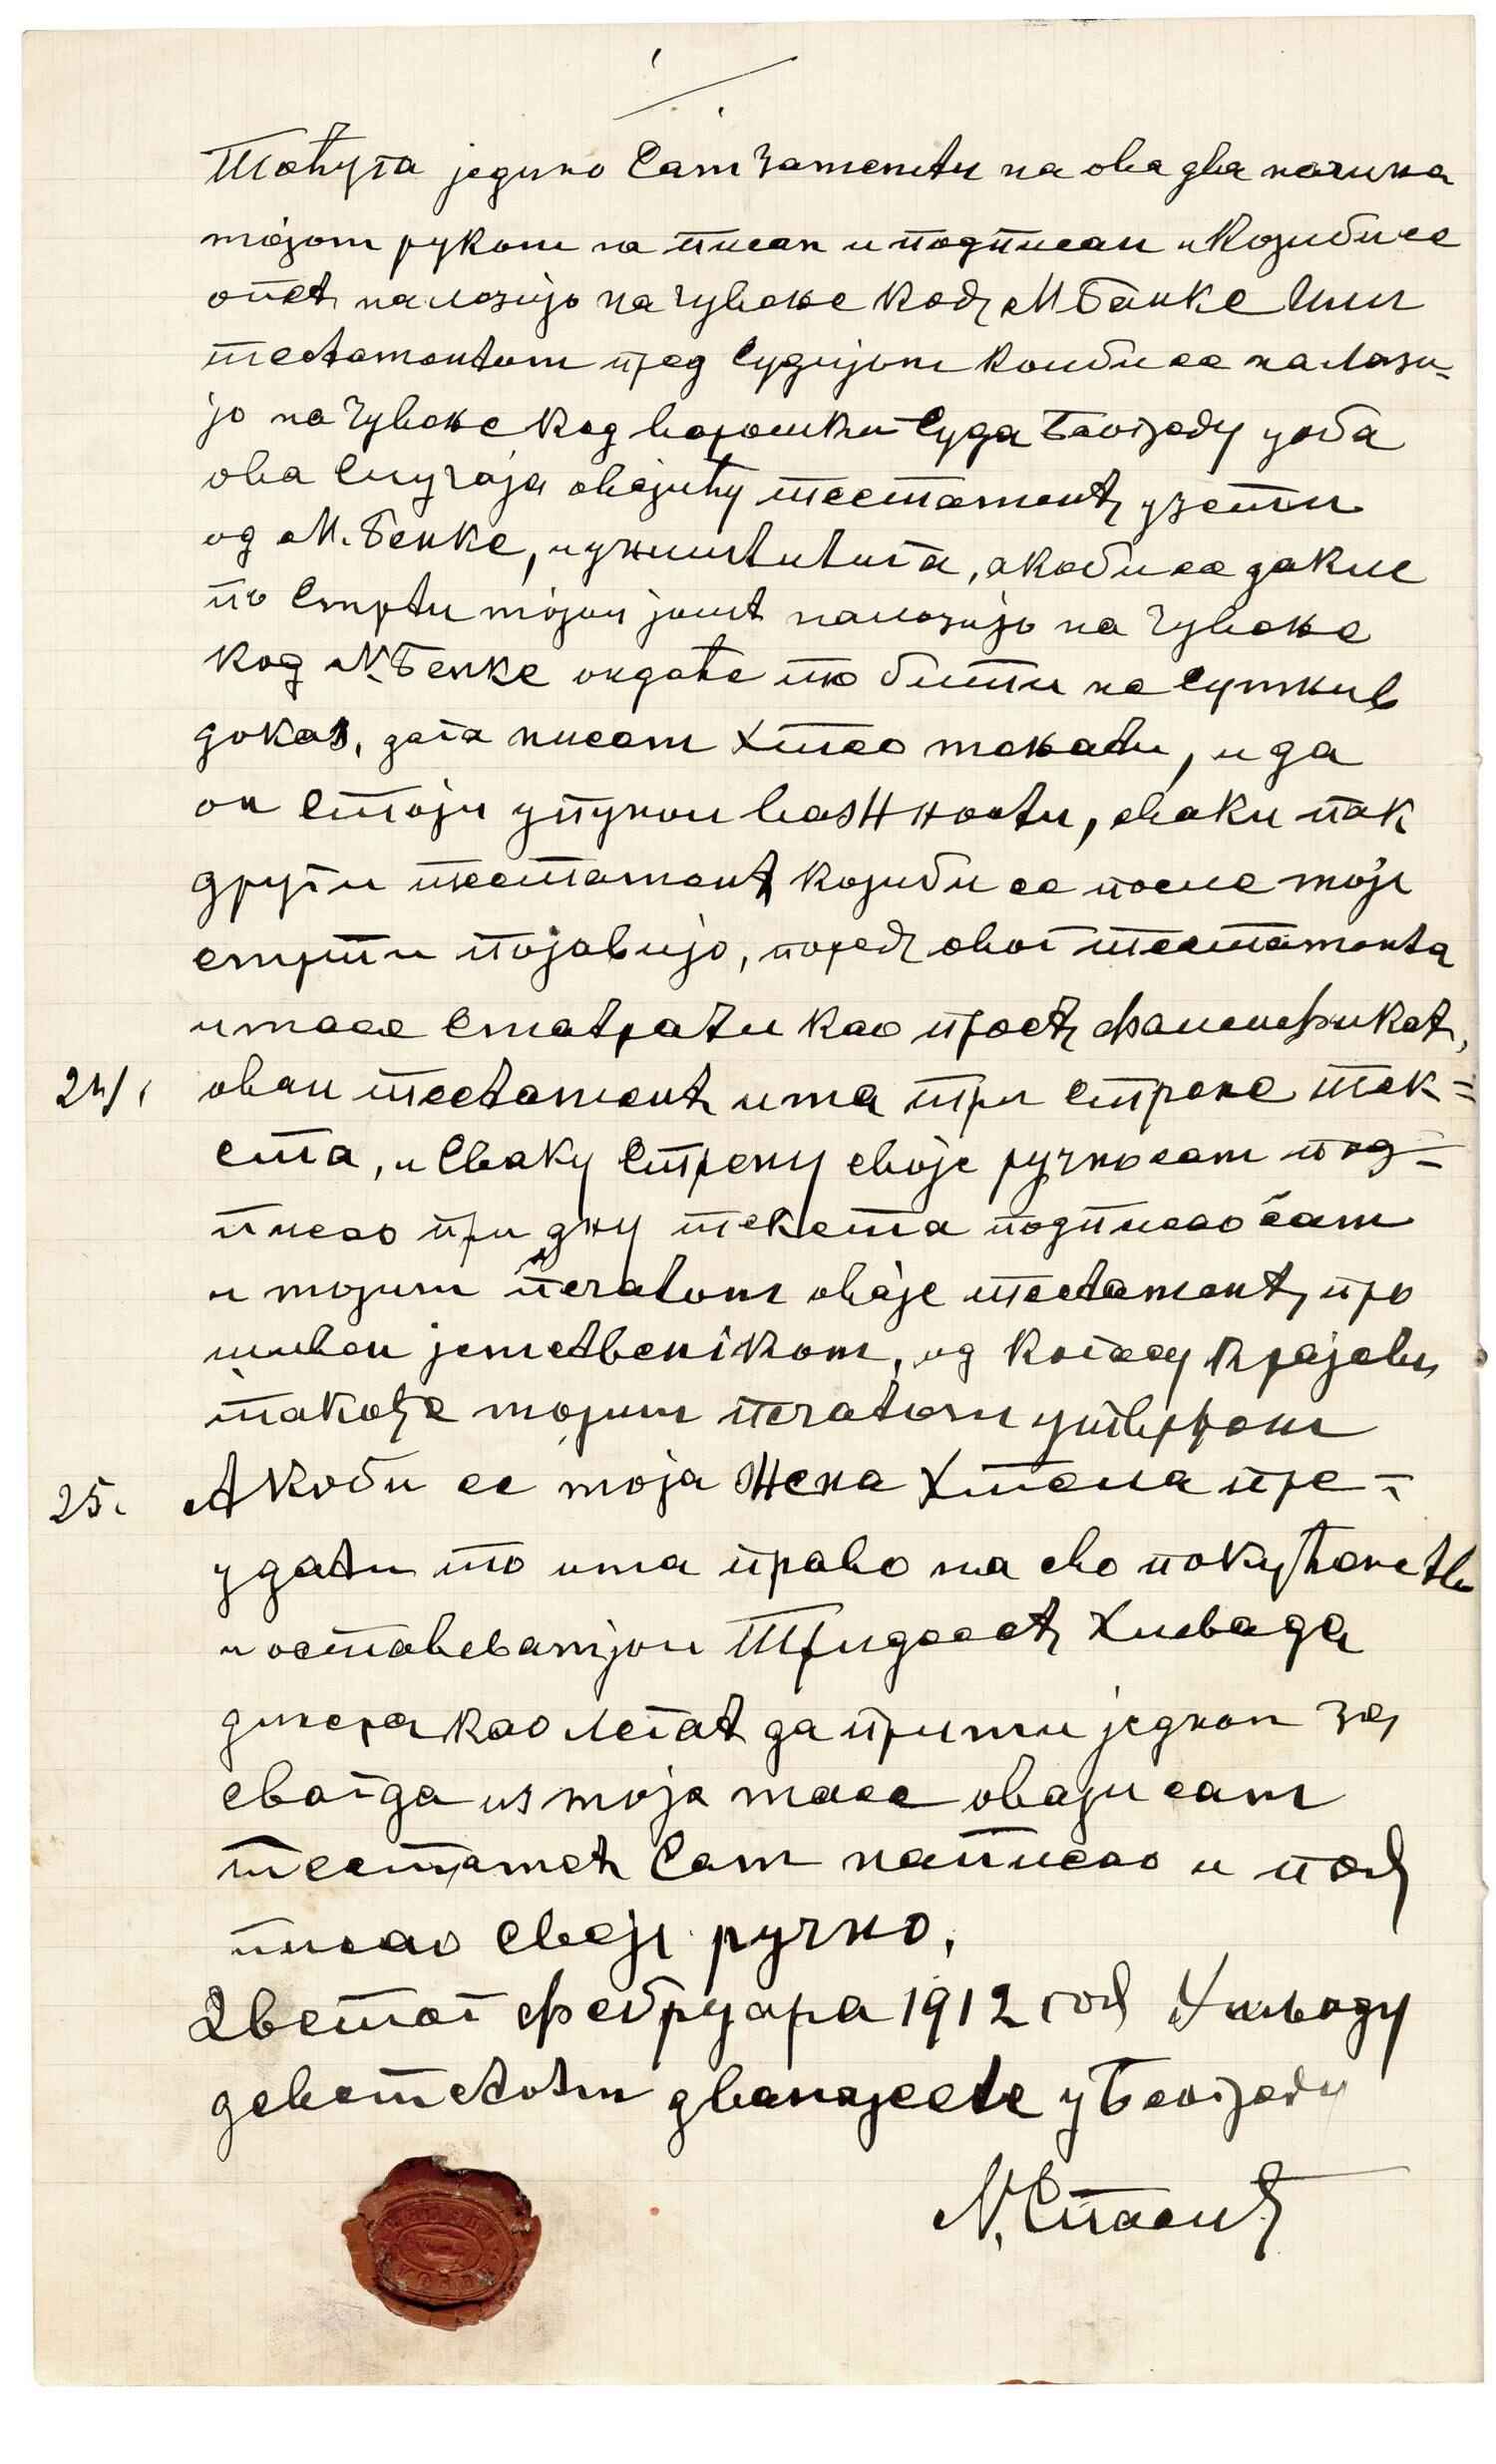 Моћуга једино Сам заменити на ова два начина
мојом руком на писан и подписан и којиби се
опет налазијо на чување код М Банке Или
тестаментом пред Судијом коиби се налази-
јо на чување код варошки Суда Београду уоба
ова Случаја овајићу тестамент узети
од М. Бенке, иуништитига, акоби се дакле
по Смрти мојои јошт налазијо на чување
код М. Бенке ондаће то бити не Сумњив
доказ, дага нисам Хтео мењати, и да
он Стоји упуној важнности, сваки пак
други тестамент којиби се после моје
смрти појавијо, поред овог тестамента
имасе Сматрати као прост фалсификат,
24/. овај тестамент има три Стране тек=
ста, и Сваку Страну своје ручносам под-
писао при дну текста подписао сам
и мојим печатом оваје тестамент про
шивен јемствеником, од когасу крајеви
такође мојим печатом утврђени
25. Акоби се моја Жена Хтела пре-
удати то има право на сво покућенство
и остављамјои Тридесет Хиљада
динера као легат да прими једном за
свагда из моје масе овајисам
тестамет Сам написао и под
писао Своје ручно,
Двестог фебруара 1912 год Хиљаду
деветстоти дванајесте у Београду
М. Стасић